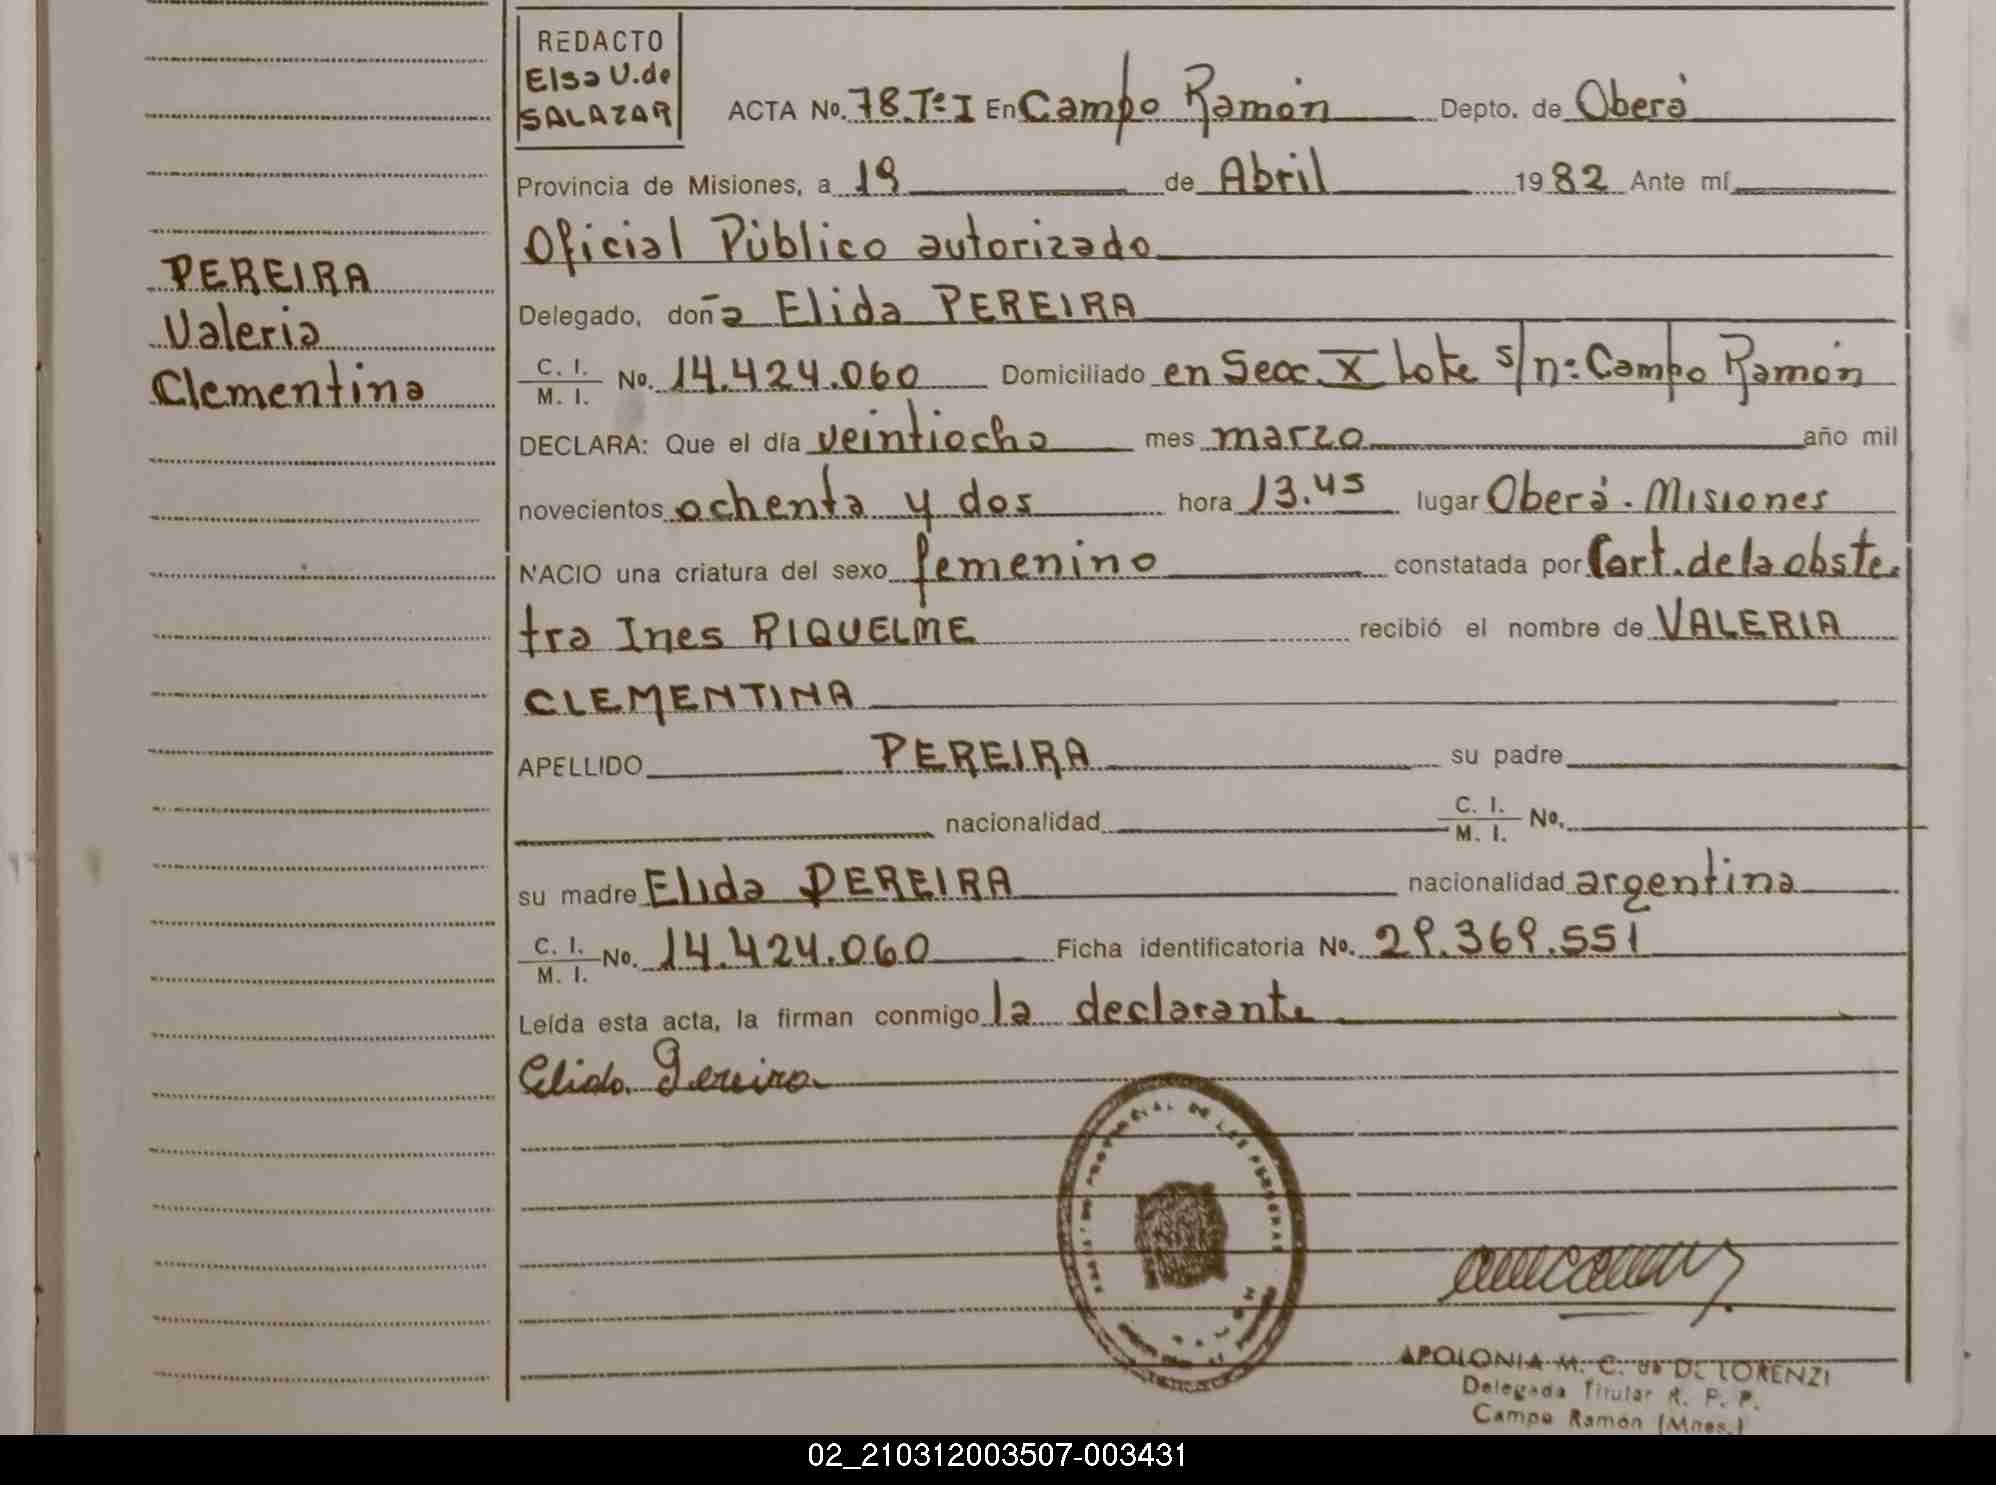 REDACTO
Elsa U. de
SALAZAR
ACTA No. 78 Tº I En Campo Ramón Depto. de Oberá
Provincia de Misiones, a 19 de Abril 1982 Ante mí
Oficial Público autorizado
PEREIRA
Valeria
Clementina
Delegado, doña Elida PEREIRA
C. I.
M. I. No. 14.424.060 Domiciliado en Secc. X Lote s/nº Campo Ramón
DECLARA: Que el día veintiocho mes marzo año mil
novecientos ochenta y dos hora 13.45 lugar Oberá. Misiones
NACIO una criatura del sexo femenino constatada por Cert. de la obste.
tra Ines RIQUELME recibió el nombre de VALERIA
CLEMENTINA
APELLIDO PEREIRA su padre
nacionalidad C. I.
M. I. No.
su madre Elida PEREIRA nacionalidad argentina
C. I.
M. I. No. 14.424.060 Ficha identificatoria No. 29.369.551
Leída esta acta, la firman conmigo la declarante
Elida Pereira
PROVINCIAL DE LAS PERSONAS
APOLONIA M. C. de DE LORENZI
Delegada Titular R. P. P.
Campo Ramón (Mnes.)
02_210312003507-003431